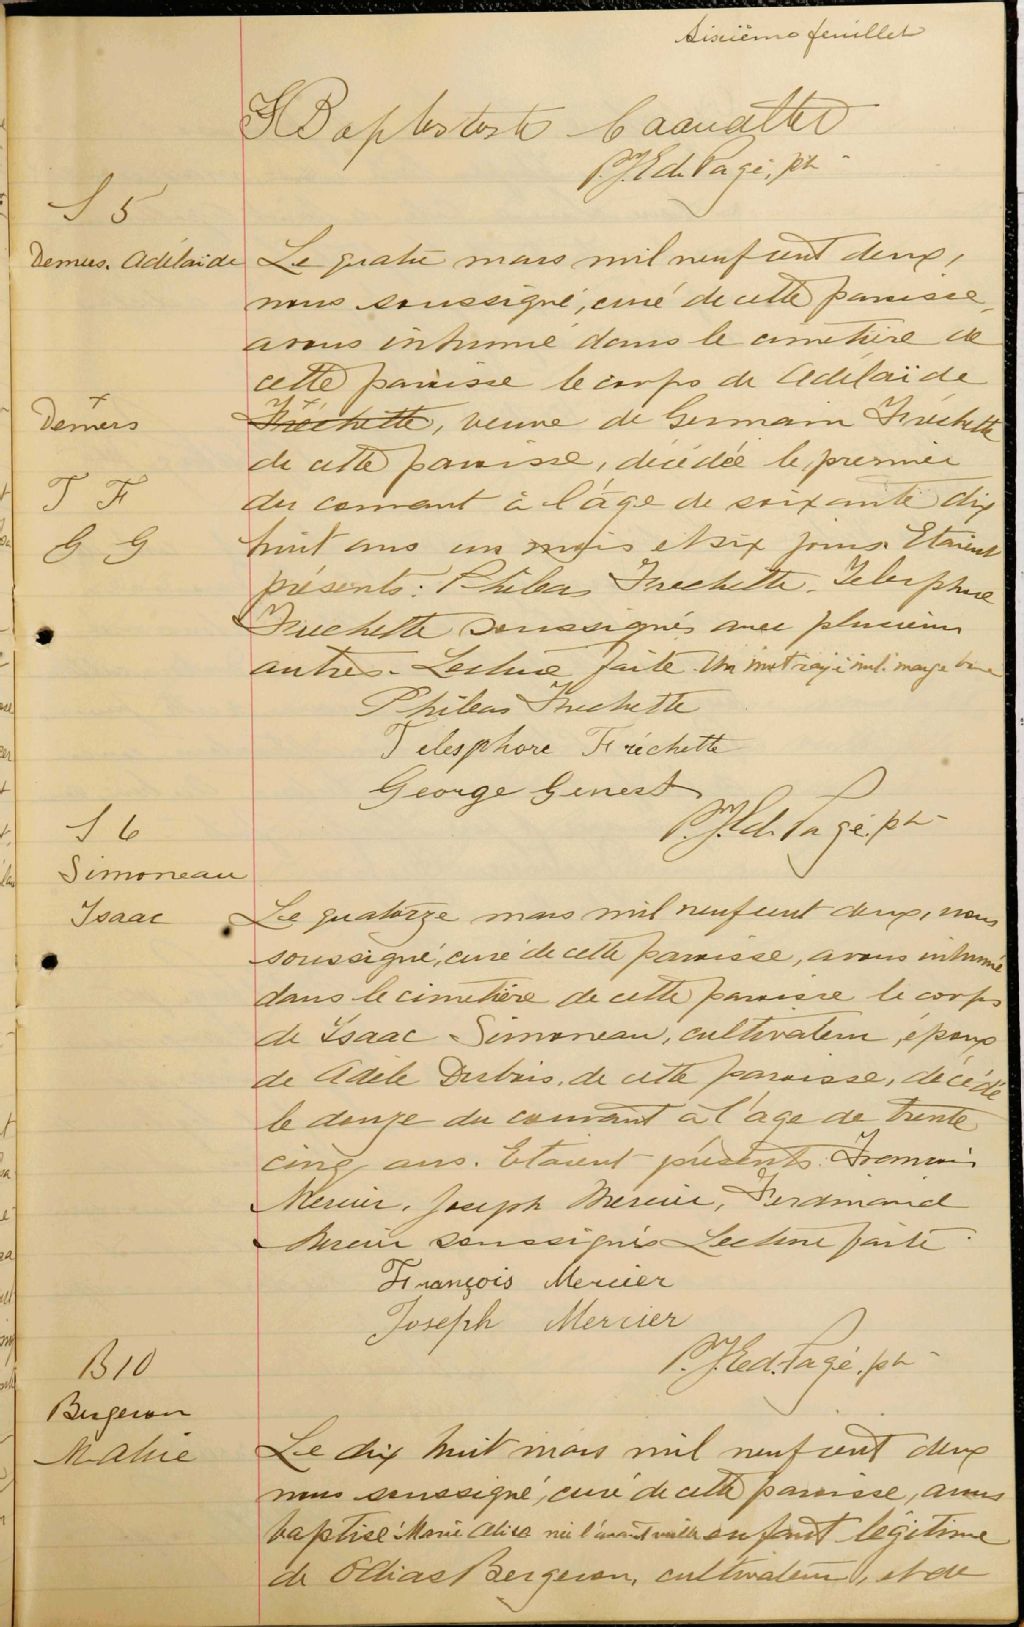 Sixième feuillet
J Baptestste Caouette
P.J.Ed. Pagé, ptr
S 5
Demers. Adélaïde
Le quatre mars mil neuf cent deux,
nous soussigné, curé de cette paroisse,
avons inhumé dans le cimetière de
cette paroisse le corps de Adélaïde
+
Demers
+
Fréchette, veuve de Germain Fréchette
de cette paroisse, décédée le premier
T F
du courant à l'âge de soixante dix
G G
huit ans un mois et six jours. Etaient
présents: Phileas Frechette. Telesphore
Frechette soussignés avec plusieurs
autres. Lecture faite. Un mot rayé nul. marge bonne
Phileas Frechette
Telesphore Fréchette
George Genest
P.J.Ed. Pagé. ptr
S 6
Simoneau
Isaac
Le quatorze mars mil neuf cent deux, nous
soussigné, curé de cette paroisse, avons inhumé
dans le cimetière de cette paroisse le corps
de Isaac Simoneau, cultivateur, époux
de Adèle Dubois, de cette paroisse, décédé
le douze du courant à l'âge de trente
cinq ans. Etaient présents. François
Mercier, Joseph Mercier, Ferdinand
Mercier soussignés Lecture faite.
François Mercier
Joseph Mercier
P.J.Ed. Pagé. ptr
B 10
Bergeron
M. Alice
Le dix huit mars mil neuf cent deux
nous soussigné, curé de cette paroisse, avons
baptisé Marie Alice née l'avant veille enfant légitime
de Odias Bergeron, cultivateur, et de